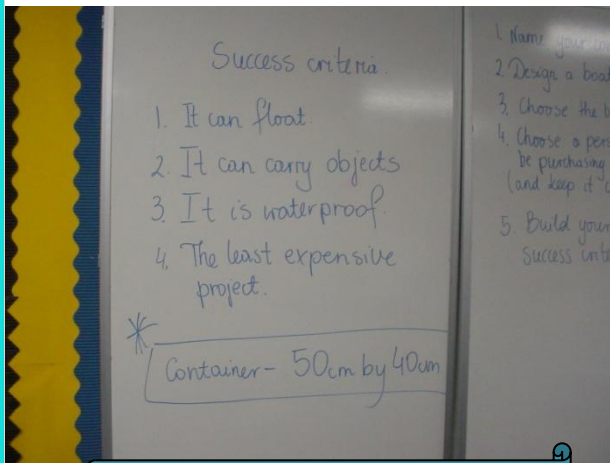 Success criteria.
1. It can float.
2. It can carry objects
3. It is waterproof.
4. The least expensive
project.
Container - 50cm by 40cm
1. Name your
2. Design a boat
3. Choose the
4. Choose a
be purchasing
(and keep it
5. Build your
success